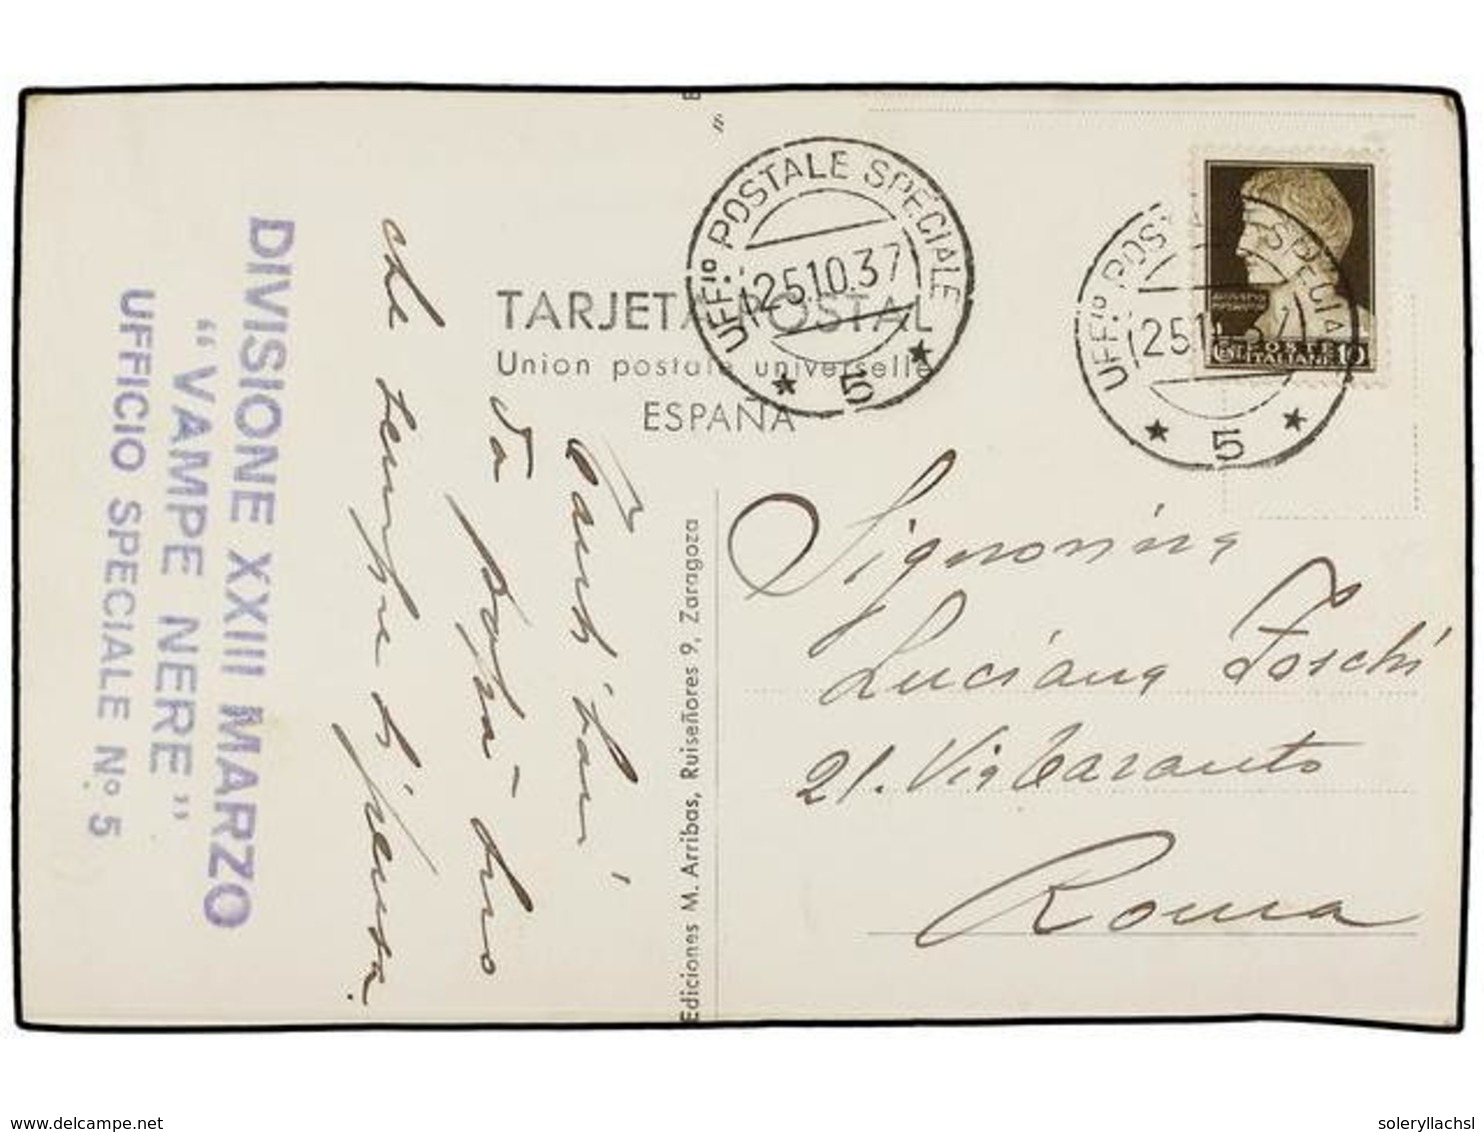 TARJETA POSTAL
Union postale universelle
ESPAÑA
UFF.IO POSTALE SPECIALE
25.10.37
★ 5 ★
UFF.IO POSTALE SPECIALE
★ 5 ★
POSTE
ITALIANE
10
Signorina
Luciana Foschi
21. Via Taranto
Roma
Ediciones M. Arribas, Ruiseñores 9, Zaragoza
Tanti
Da
che sempre ti pensa.
DIVISIONE XXIII MARZO
"VAMPE NERE"
UFFICIO SPECIALE Nº 5
delcampe.net
soleryllachsl